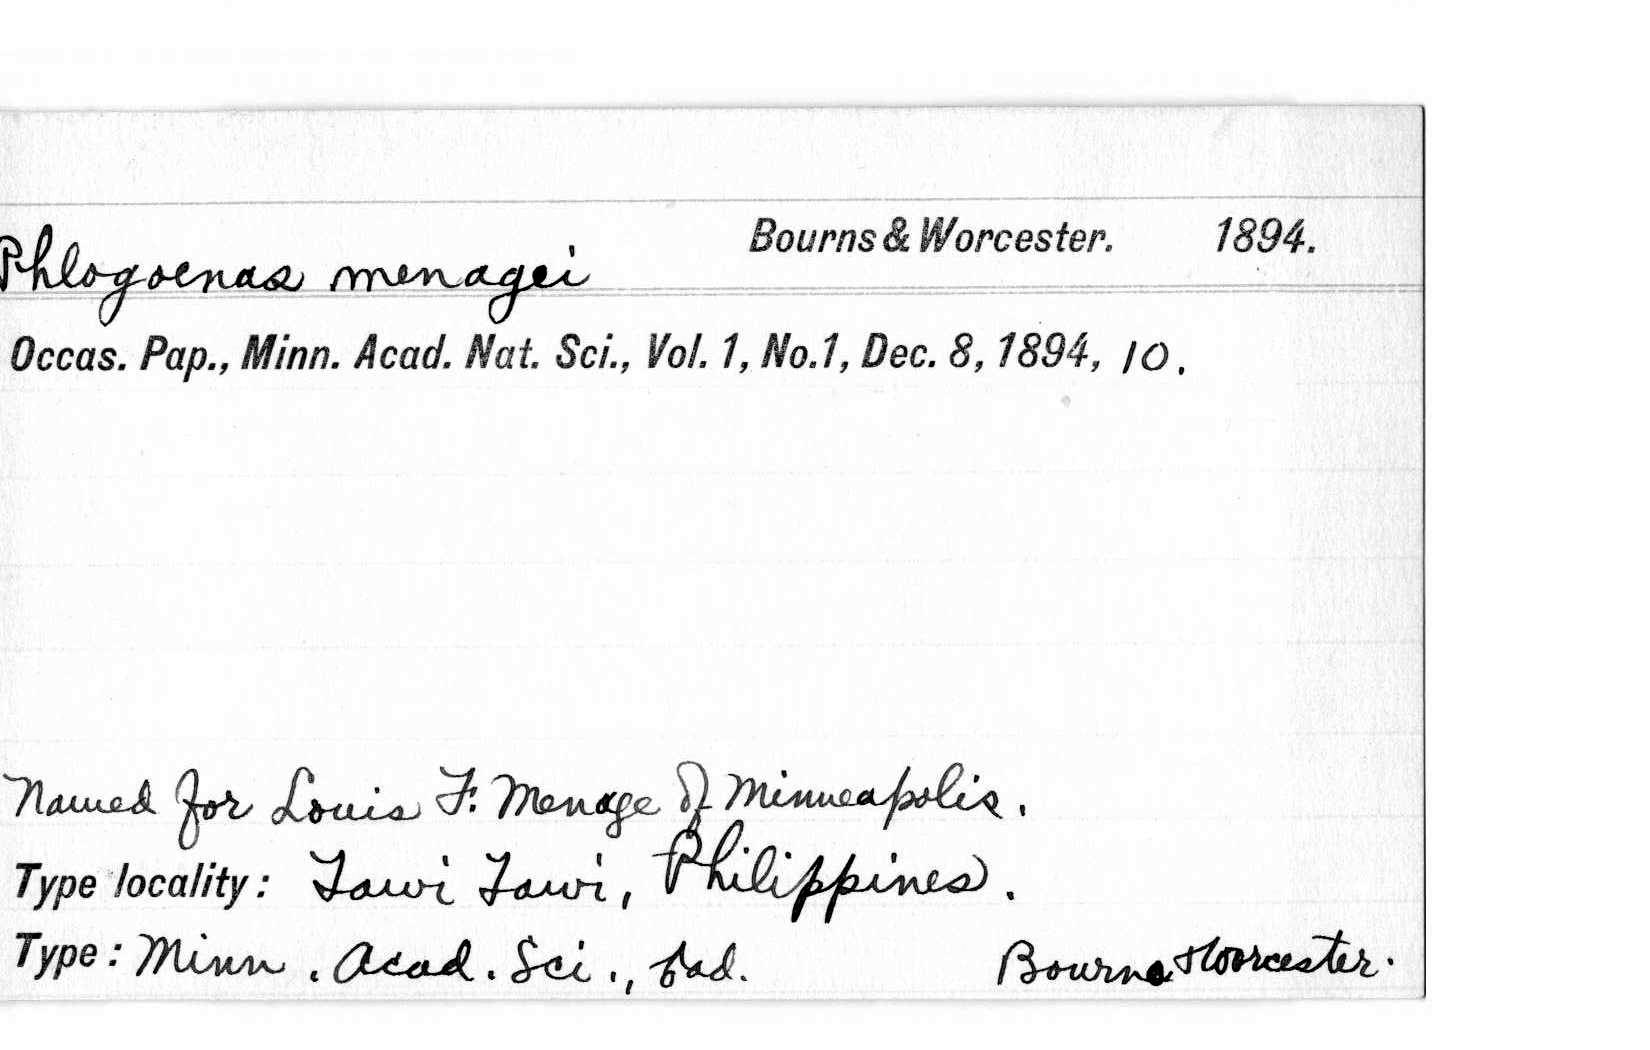 Phlogoenas menagei Bourns & Worcester. 1894.
Occas. Pap., Minn. Acad. Nat. Sci., Vol. 1, No.1, Dec. 8, 1894, 10.
Named for Louis F. Menage of Minneapolis.
Type locality: Tawi Tawi, Philippines.
Type: Minn. Acad. Sci., ad. Bourns Worcester.